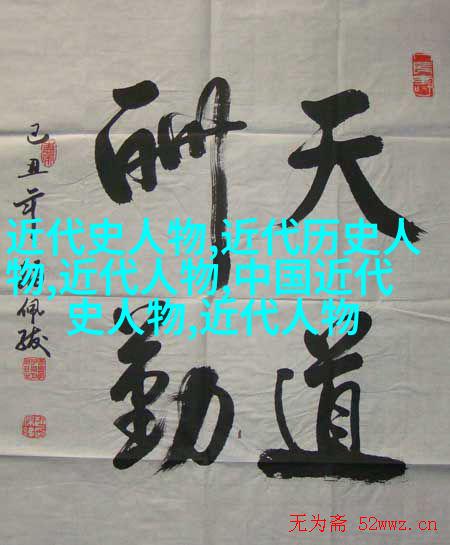 天道
酬勤
己丑
佩
近代史人物,近代历史人
物,近代人物,中国近代
史人物,近代人物
无为斋 52wwz.cn